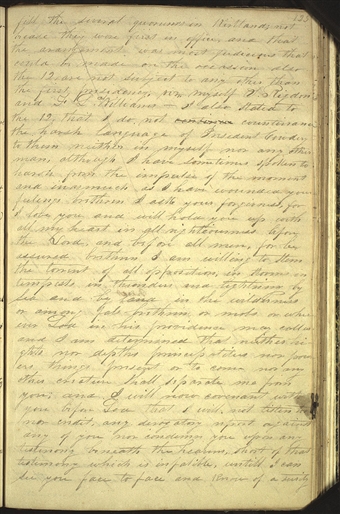 123
fill the several quorums in Kirtland, not
because they were first in office, and that
the arrangement was most judicious that
could be made on the occasion also
the 12 are not subject to any other than
the first presidency, viz myself S. Rigdon
and F. G. Williams — I also stated to
the 12, that I do not countenance
the harsh language of President Cowdery
to them neither in myself nor any other
man, although I have sometimes spoken to
harsh from the impulse of the moment
and inasmuch as I have wounded your
feelings brethren I ask your forgivness, for
I love you and will hold you up with
all my heart in all righteousness before
the Lord, and before all men, for be
assured brethren I am willing to stem
the torrent of all opposition, in storms in
tempests in thunders and lightning by
sea and by land in the wilderness
or among fals brethren, or mobs or wher
ever God in his providence may call us
and I am determined that neither hi
ghts nor depths principalities nor pow
ers things present or to come nor any
other creature shall separate me from
you; and I will now covenant with
you before God that I will not listen to
nor credit, any derogatory report against
any of you nor condemn you upon any
testimony beneath the heavens, short of that
testimony which is infalible, untill I can
see you face to face and know of a surity